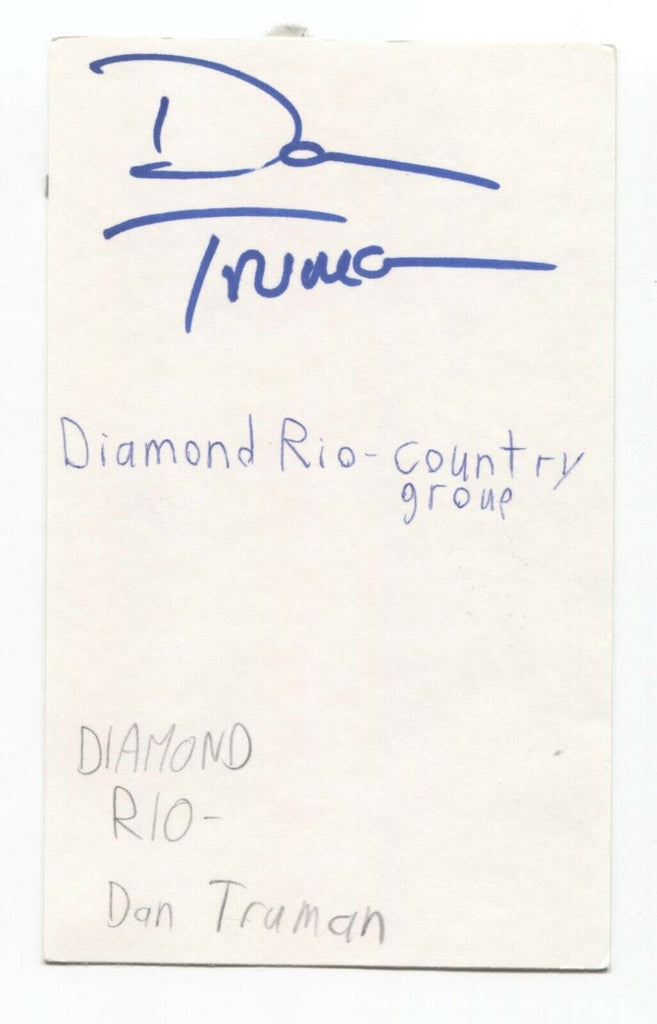 Dan
Truman
Diamond Rio - country
group
DIAMOND
RIO -
Dan Truman